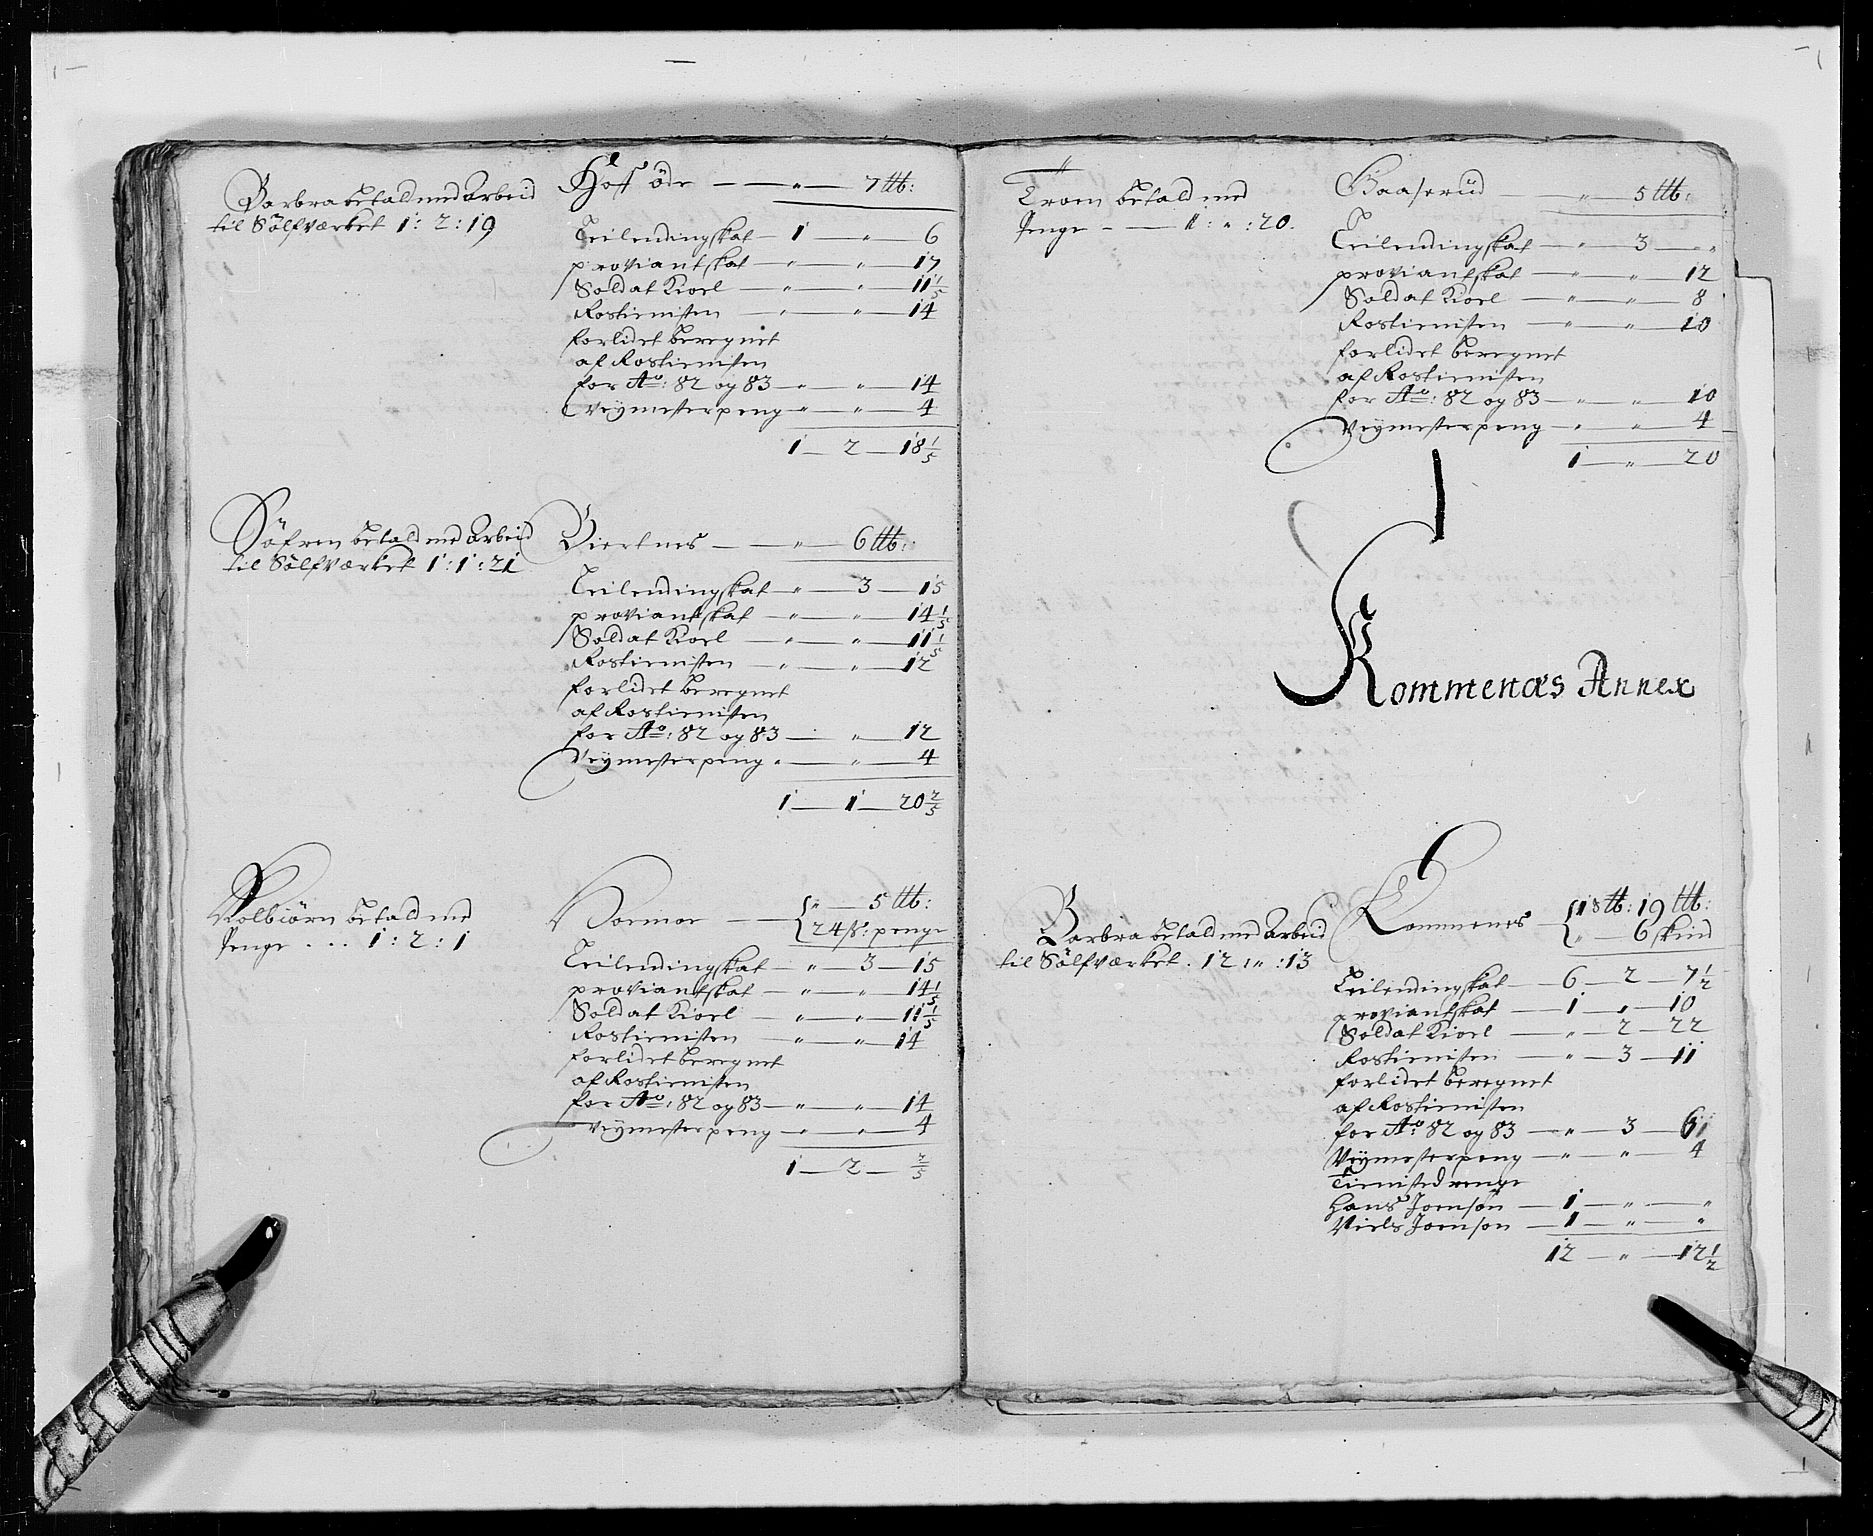 Barbra betald med Arbeid
til Sölfværket 1 : 2 : 19
Hoff öde — „ — 7 ℔:
Leilendingskat — 1 — „ — 6
proviantskat — „ — „ — 17
Soldat Kioel — „ — „ — 11 1/5
Rostienisten — „ — „ — 14
forlidet beregnet
af Rostienisten
for Ao: 82 og 83 — „ — „ — 14
Veymesterpeng — „ — „ — 4
1 — 2 — 18 1/5
Söfren betald med Arbeid
til Sölfværket 1 : 1 : 21
Biertnes — „ — 6 ℔:
Leilendingskat — „ — 3 — 15
proviantskat — „ — „ — 14 1/5
Soldat Kioel — „ — „ — 11 1/5
Rostienisten — „ — „ — 12
forlidet beregnet
af Rostienisten
for Ao: 82 og 83 — „ — 12
Veymesterpeng „ — „ — 4
1 — 1 — 20 2/5
Kolbiörn betald med
Penge . . . 1 : 2 : 1
Hormoe — „ — 5 ℔:
24 ß: penge
Leilendingskat — „ — 3 — 15
proviantskat — „ — „ — 14 1/5
Soldat Kioel — „ — „ — 11 1/5
Rostienisten — „ — „ — 14
forlidet beregnet
af Rostienisten
for Ao: 82 og 83 — „ — „ — 14
Veymesterpeng — „ — „ — 4
1 — 2 — 2/5
„
Troen betald med
Penge — — 1 : „ : 20.
Gaaserud — „ — 5 ℔:
Leilendingskat — „ — 3 — „
proviantskat — „ — „ — 12
Soldat Kioel — „ — „ — 8
Rostienisten — „ — „ — 10
forlidet beregnet
af Rostienisten
for Ao: 82 og 83 — „ — „ — 10
Veymesterpeng — „ — „ — 4
1 — „ — 20
Kommenæs Annex
Barbra betald med Arbeid
til Sölfværket . 12 : „ : 13
Kommenes — 1 S℔: 19 ℔:
„ — 6 skind
Leilendingskat — 6 — 2 — 7 1/2
proviantskat — 1 — „ — 10
Soldat Kioel — „ — 2 — 22
Rostienisten — „ — 3 — 11
forlidet beregnet
af Rostienisten
for Ao: 82 og 83 — „ — 3 —
Veymesterpeng — „ — „ — 4
Tienistedrenge
Hans Joensön — 1 — „ — „
Niels Joensön — 1 — „ — „
12 — „ — 12 1/2